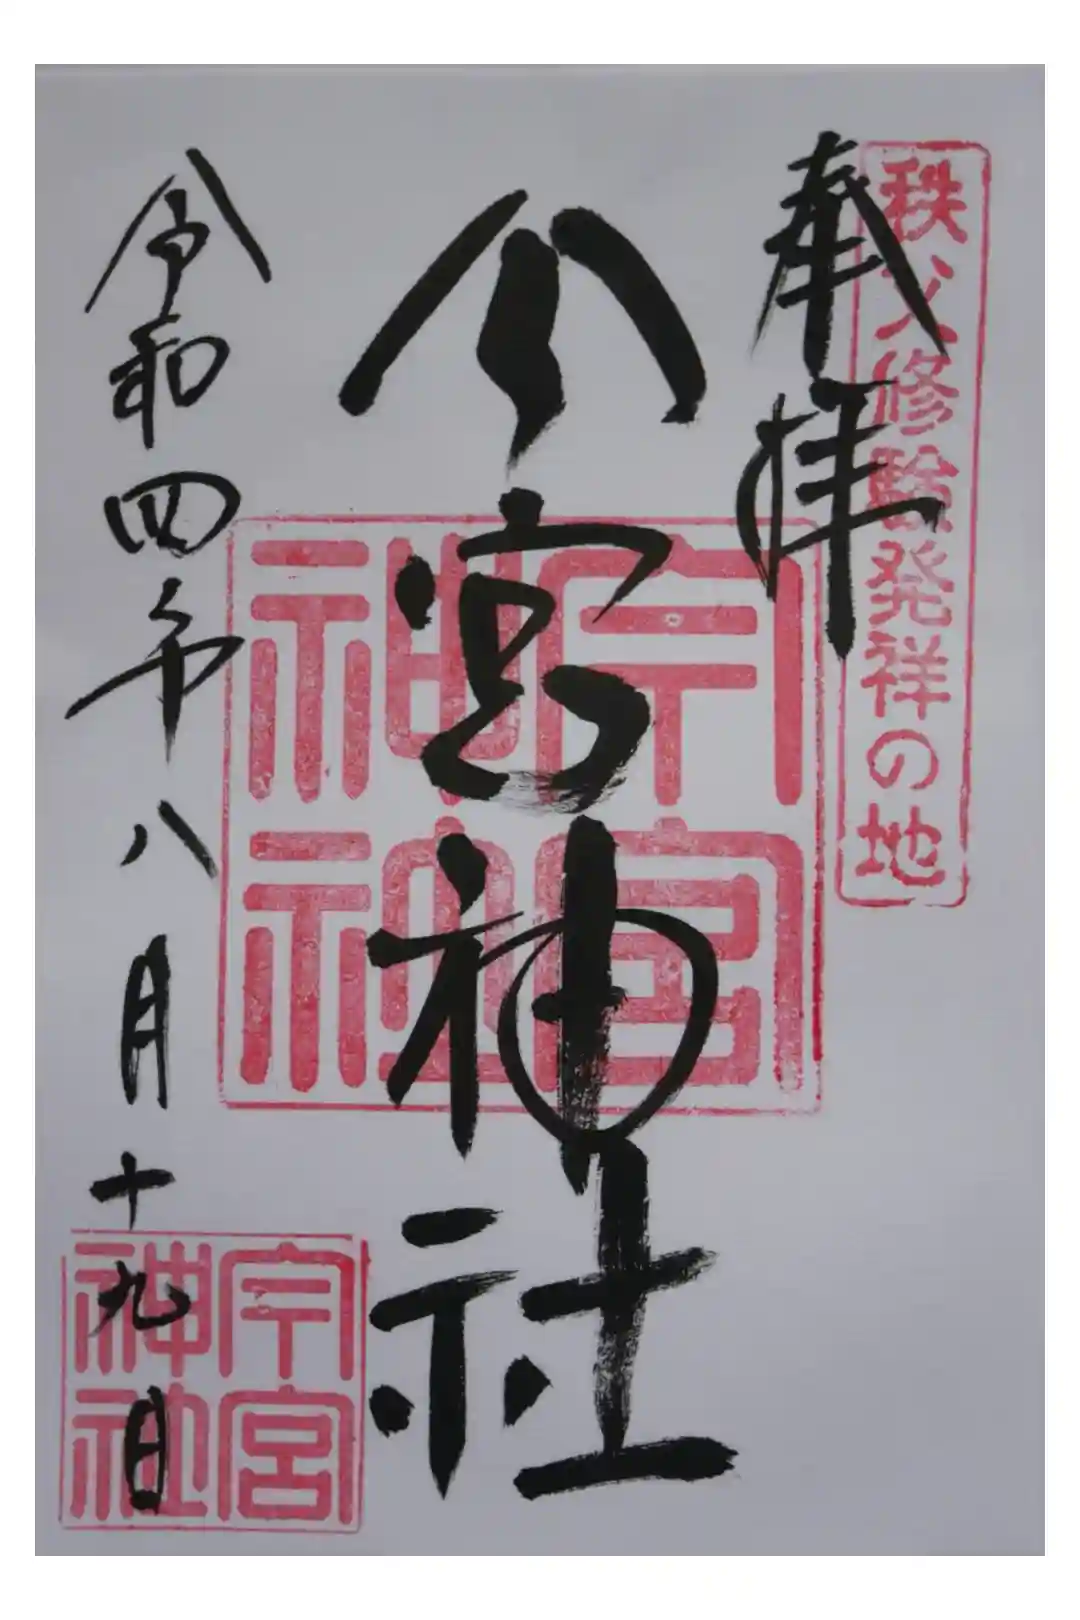 秩父修験発祥の地
奉拝
今宮神社
今宮神社
令和四年八月十九日
今宮神社